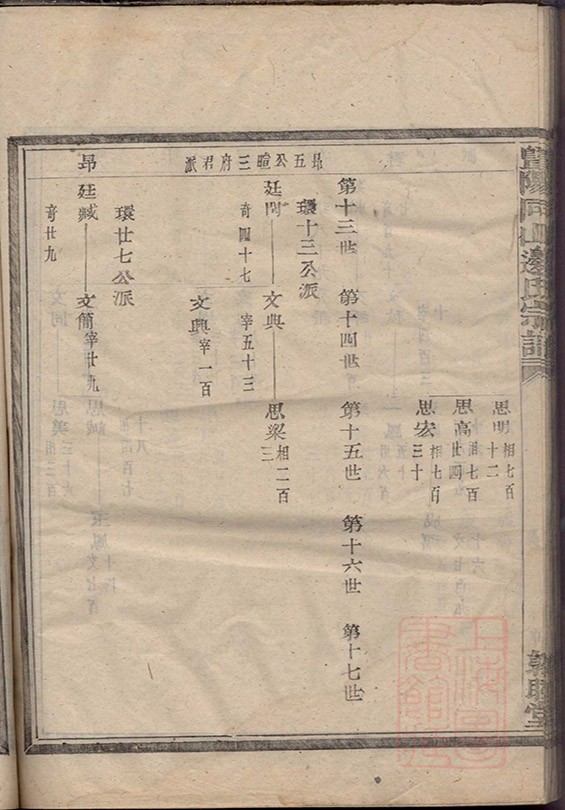 暨陽同山邊氏宗譜
思明 相七百十二
思高 相七百廿四
思宏 相七百三十
昂五公暄三府君派
第十三世 第十四世 第十五世 第十六世 第十七世
環十三公派
廷問 奇四十七 文典 宰五十三 思梁 相二百三
文興 宰一百
環廿七公派
昂 廷臧 奇廿九 文簡 宰廿九